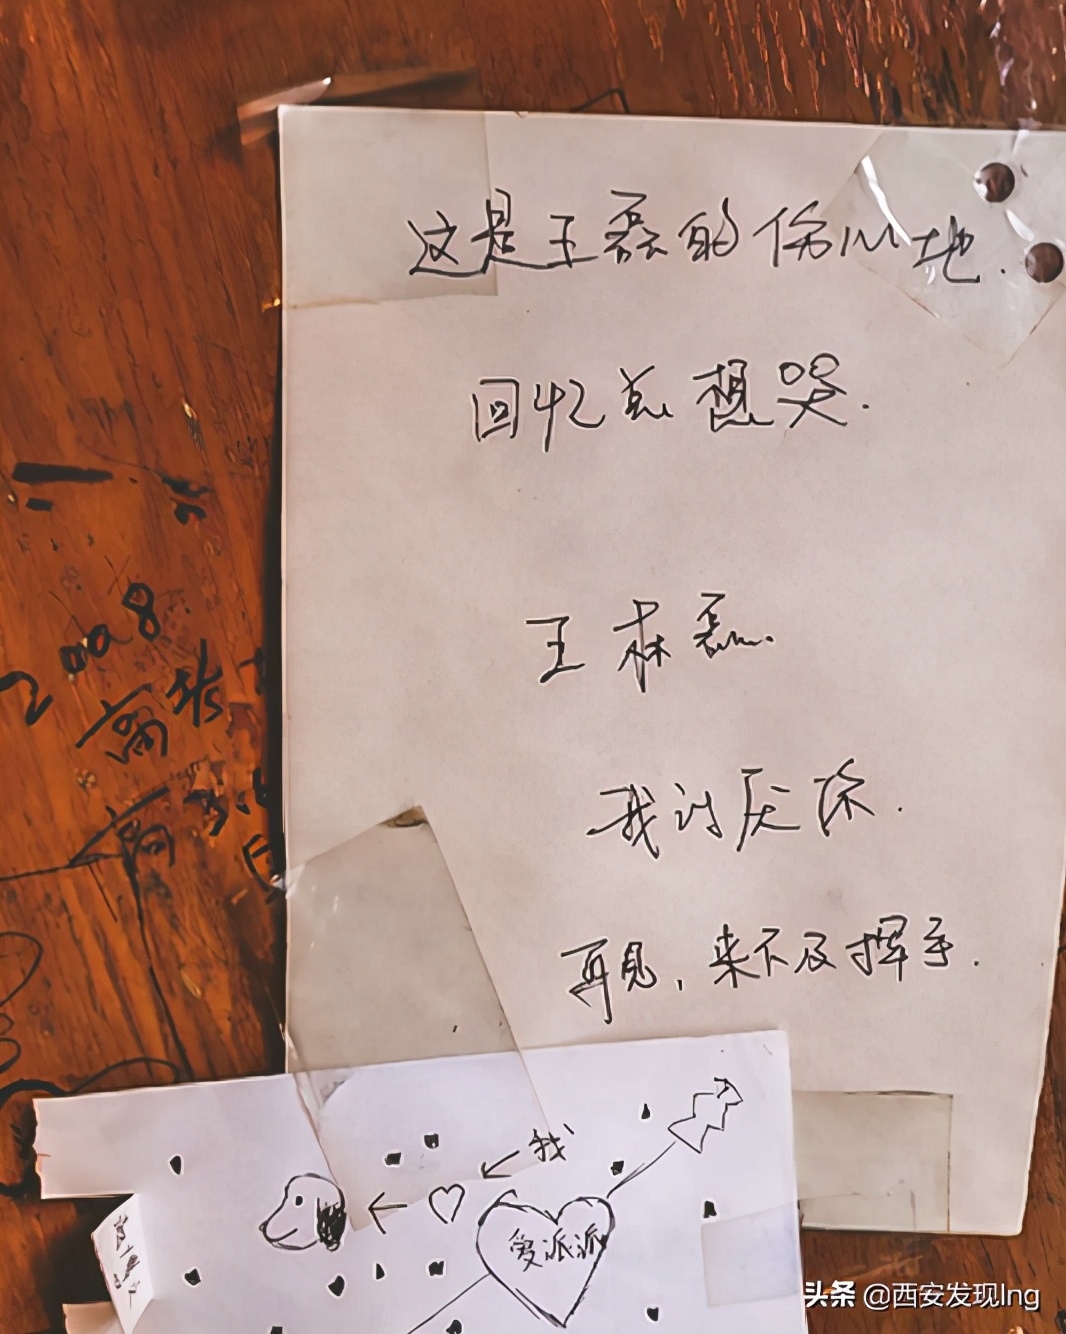 这是王磊的伤心地.
回忆总想哭.
王林磊.
我讨厌你.
再见,来不及挥手.
2008
高考
我
爱派派
头条 @西安发现lng